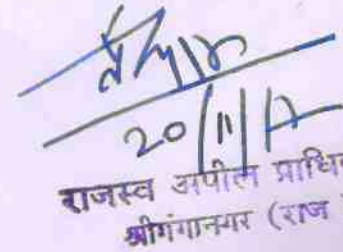 20/11/17
राजस्व अपील प्राधि
श्रीगंगानगर (राज